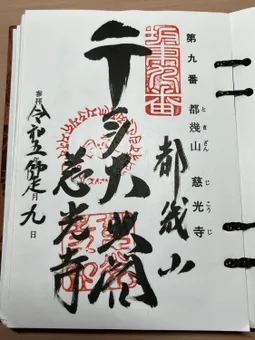 第九番 都幾山 慈光寺
ときざん じこうじ
坂東九番
都幾山
千手大悲閣
慈光寺
参拝 令和五師走月九日